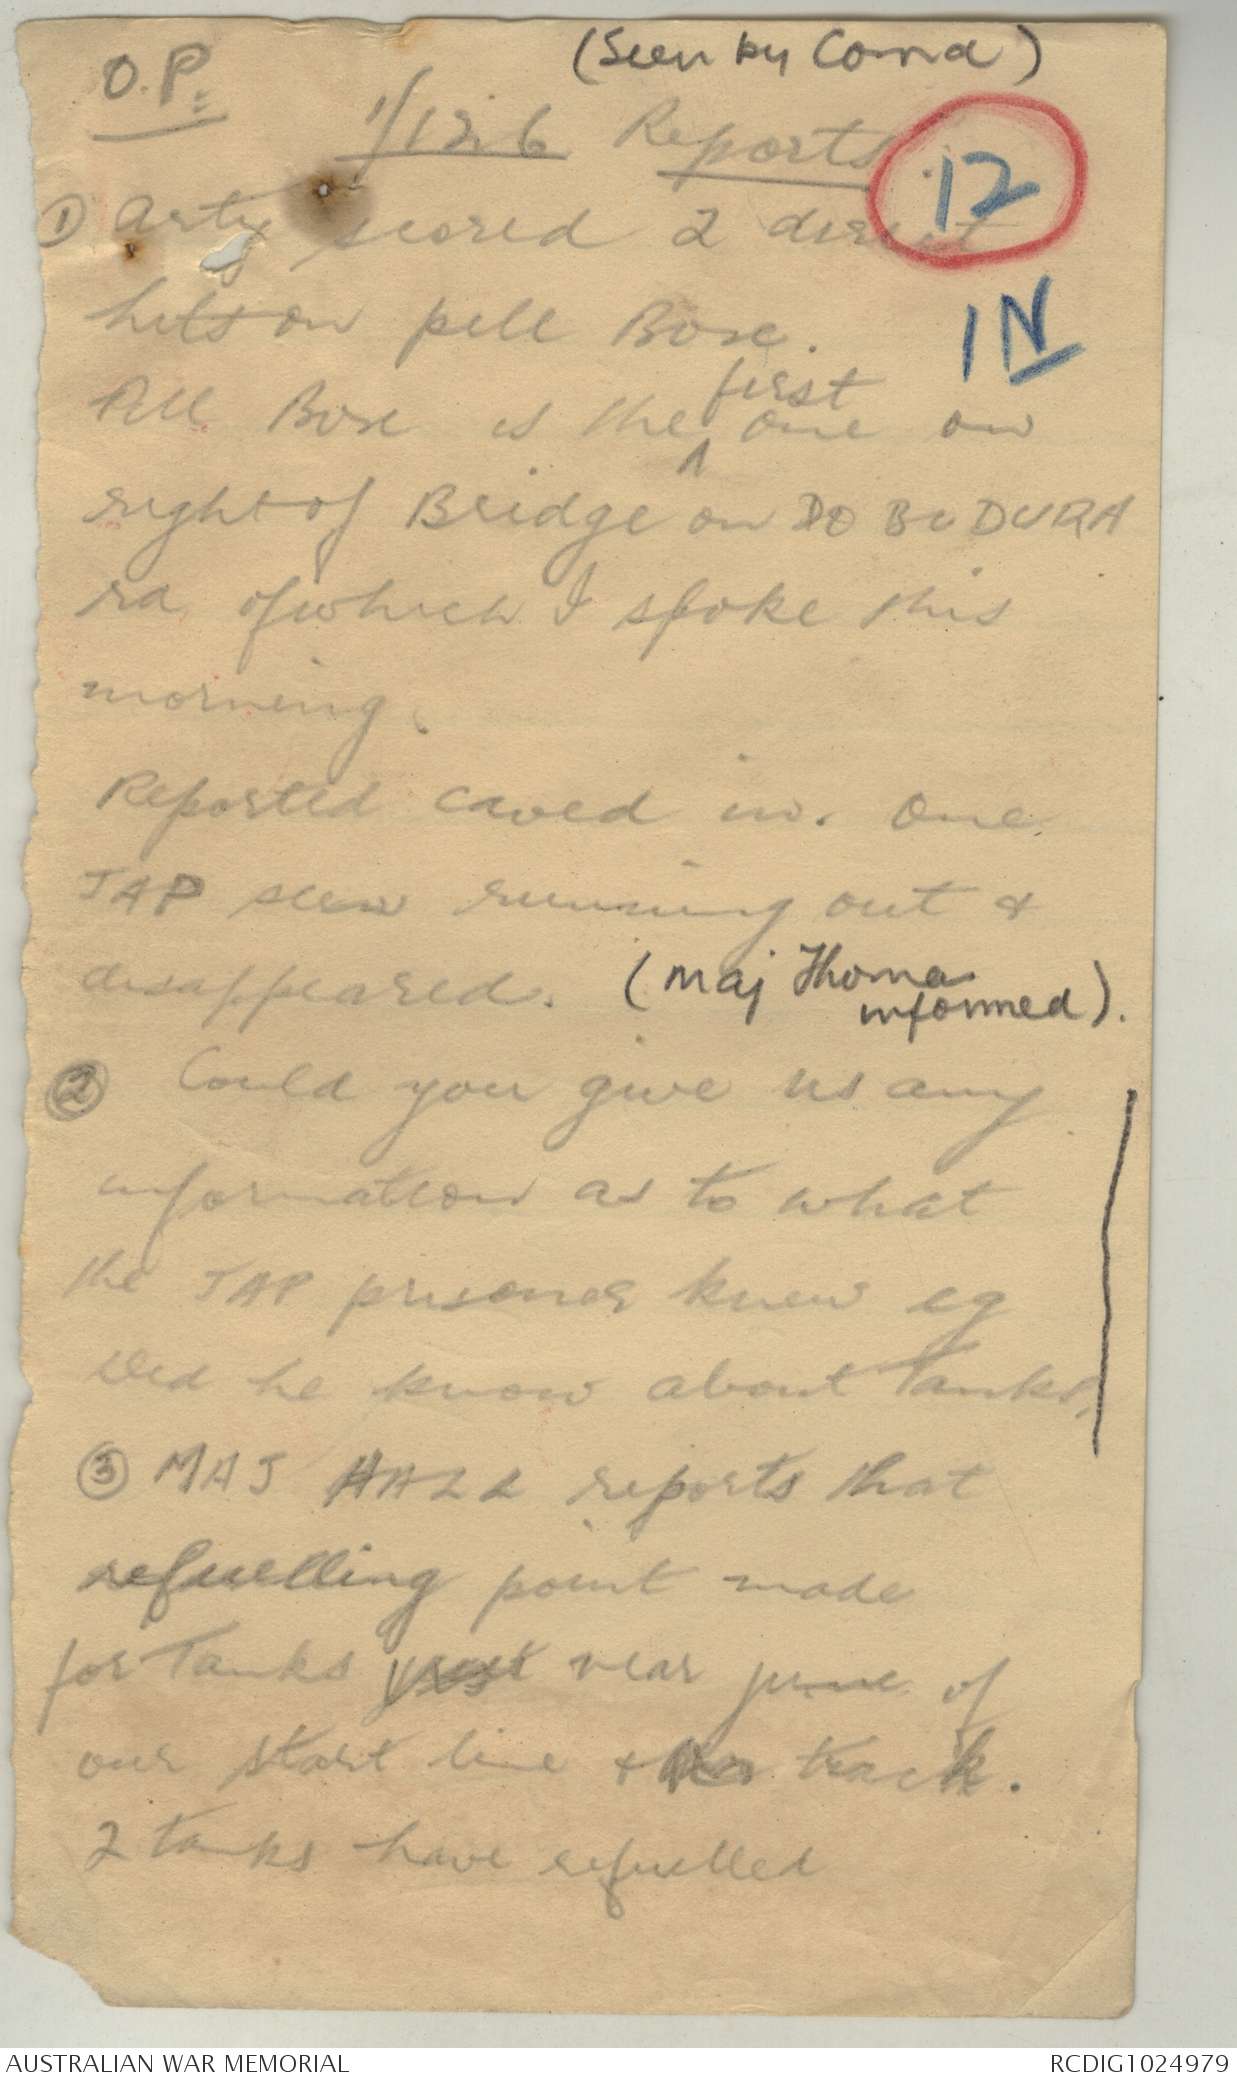 (Seen by Comd)
O.P.
1/126 Reports
12
IN
① Arty scored 2 direct
hits on pill Boxe.
Pill Boxe is the first one on
right of Bridge on DOBUDURA
rd, of which I spoke this
morning.
Reported caved in. One
JAP seen running out &
disappeared. (Maj Thomas
informed).
② Could you give us any
information as to what
the JAP prisoner knew eg
Did he know about Tanks.
③ MAJ HALL reports that
refuelling point made
for Tanks just near junc of
our start line & track.
2 tanks have refuelled
AUSTRALIAN WAR MEMORIAL
RCDIG1024979